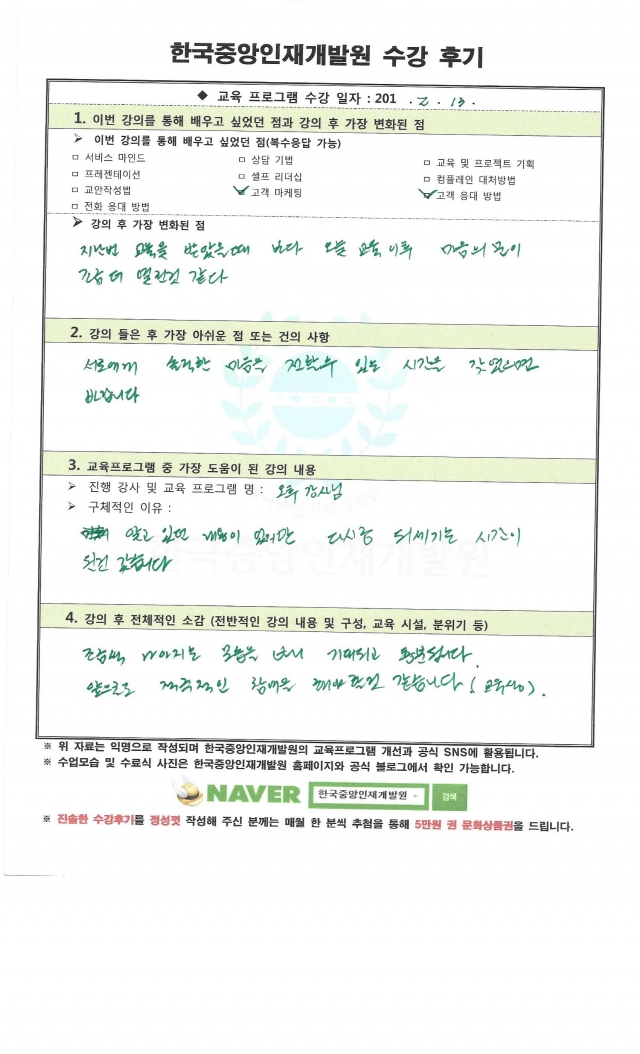 한국중앙인재개발원 수강 후기
◆ 교육 프로그램 수강 일자 : 201 . 2 . 13 .
1. 이번 강의를 통해 배우고 싶었던 점과 강의 후 가장 변화된 점
➢ 이번 강의를 통해 배우고 싶었던 점(복수응답 가능)
□ 서비스 마인드 □ 상담 기법 □ 교육 및 프로젝트 기획
□ 프레젠테이션 □ 셀프 리더십 □ 컴플레인 대처방법
□ 교안작성법 ☑ 고객 마케팅 ☑ 고객 응대 방법
□ 전화 응대 방법
➢ 강의 후 가장 변화된 점
지난번 교육을 받았을때 보다 오늘 교육 이후 마음의 문이
조금 더 열린것 같다
2. 강의 들은 후 가장 아쉬운 점 또는 건의 사항
서로에게 솔직한 마음을 전할수 있는 시간을 갖었으면
바랍니다
3. 교육프로그램 중 가장 도움이 된 강의 내용
➢ 진행 강사 및 교육 프로그램 명 : 오후 강사님
➢ 구체적인 이유 :
알고 있던 내용이 있지만 다시금 되세기는 시간이
된것 같습니다
4. 강의 후 전체적인 소감 (전반적인 강의 내용 및 구성, 교육 시설, 분위기 등)
조금씩 나아지는 모습을 보니 기대되고 흥분됩니다.
앞으로도 적극적인 참여을 해야 할것 같습니다 (교육생).
※ 위 자료는 익명으로 작성되며 한국중앙인재개발원의 교육프로그램 개선과 공식 SNS에 활용됩니다.
※ 수업모습 및 수료식 사진은 한국중앙인재개발원 홈페이지와 공식 블로그에서 확인 가능합니다.
NAVER 한국중앙인재개발원 검색
※ 진솔한 수강후기를 정성껏 작성해 주신 분께는 매월 한 분씩 추첨을 통해 5만원 권 문화상품권을 드립니다.